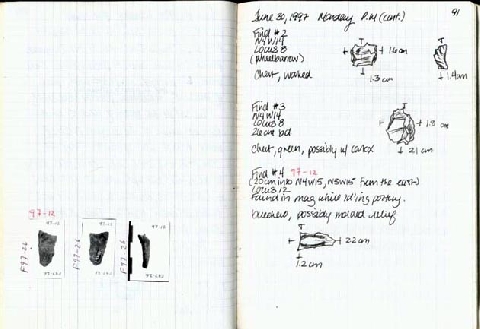 97-12
97-12
97-12
97-12
F97-26
F97-26
F97-26
June 30, 1997 Monday P.M (cont.)
91
Find #2
N4W14
Locus 8
(wheelbarrow)
chert, worked
1.6 cm
1.3 cm
1.4cm
Find #3
N4W14
Locus 8
chert, green, possibly w/ cortex
1.8 cm
2.1 cm
Find #4 97-12
(20cm into N4W15, N5W15 from the
Locus 12
Found in mag while
possibly molded relief
2.2 cm
1.2 cm